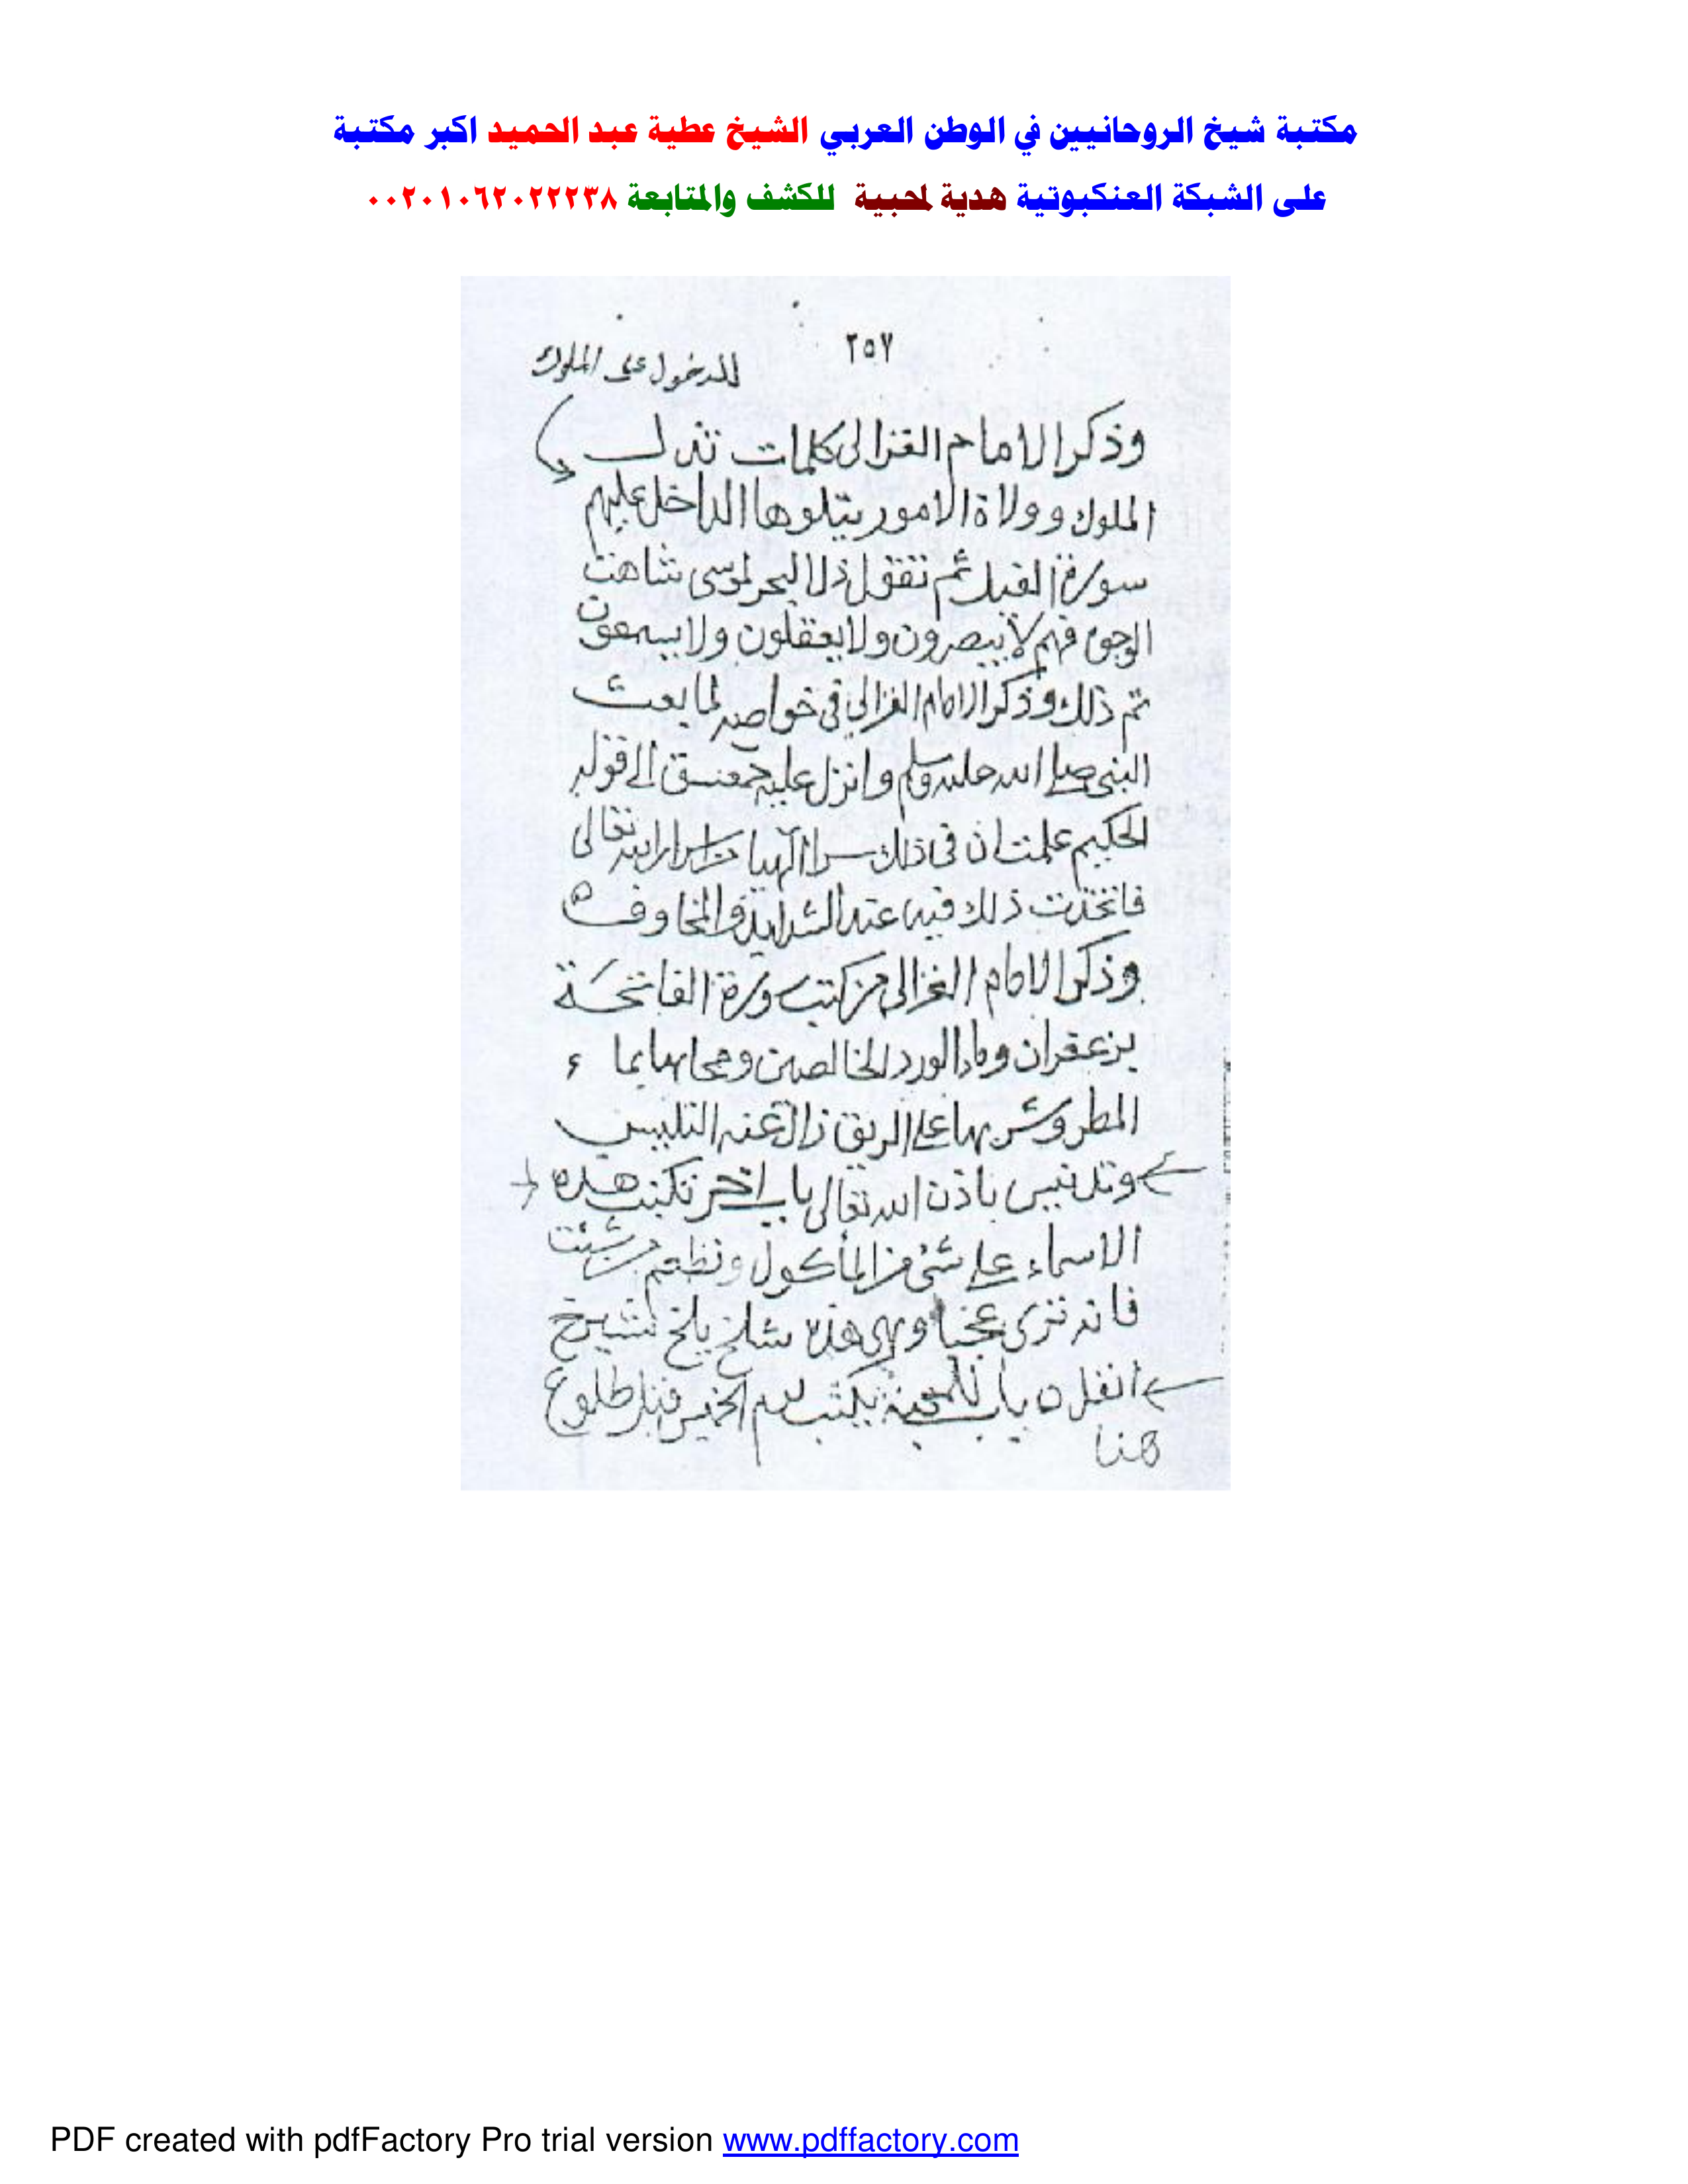 مكتبة شيخ الروحانيين في الوطن العربي الشيخ عطية عبد الحميد اكبر مكتبة
على الشبكة العنكبوتية هدية لمحبية للكشف والمتابعة ٠٠٢٠١٠٦٢٠٢٢٢٣٨
٢٥٧
للدخول على الملوك
وذكر الامام الغزالى كلمات تذل
الملوك وولاة الامور يتلوها الداخل عليهم
سورة الفيل ثم تقول ذل البحر لموسى شاهت
الوجوه فهم لا يبصرون ولا يعقلون ولا يسمعون
تم ذلك وذكر الامام الغزالى فى خواصه لما بعث
النبى صلى الله عليه وسلم وانزل عليه حمعسق الى قوله
الحكيم علمت ان فى ذلك سرا الهيا من اسرار الله تعالى
فاتخذت ذلك فيه عند الشدايد والمخاوف
وذكر الامام الغزالى من كتب سورة الفاتحة
بزعفران وماء الورد الخالصين ومحاها بماء
المطر وشربها على الريق زال عنه التلبيس
وتدنيس باذن الله تعالى باب اخر تكتب هذه
الاسماء على شئ من المأكول وتطعم من شئت
فانه ترى عجبا وهى هذه شلخ يلخ شيرخ
انقل ه باب للمحبة يكتب يوم الخميس قبل طلوع
هنا
PDF created with pdfFactory Pro trial version www.pdffactory.com